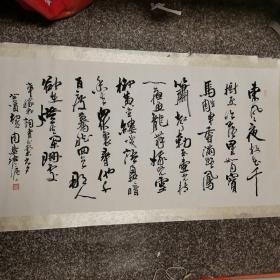 東風夜放花千
樹更吹落星如雨寶
馬雕車香滿路鳳
簫聲動玉壺光轉
一夜魚龍舞蛾兒雪
柳黃金縷笑語盈盈暗
香去眾裏尋他千
百度驀然回首那人
卻在燈火闌珊處
辛棄疾詞青玉案元夕